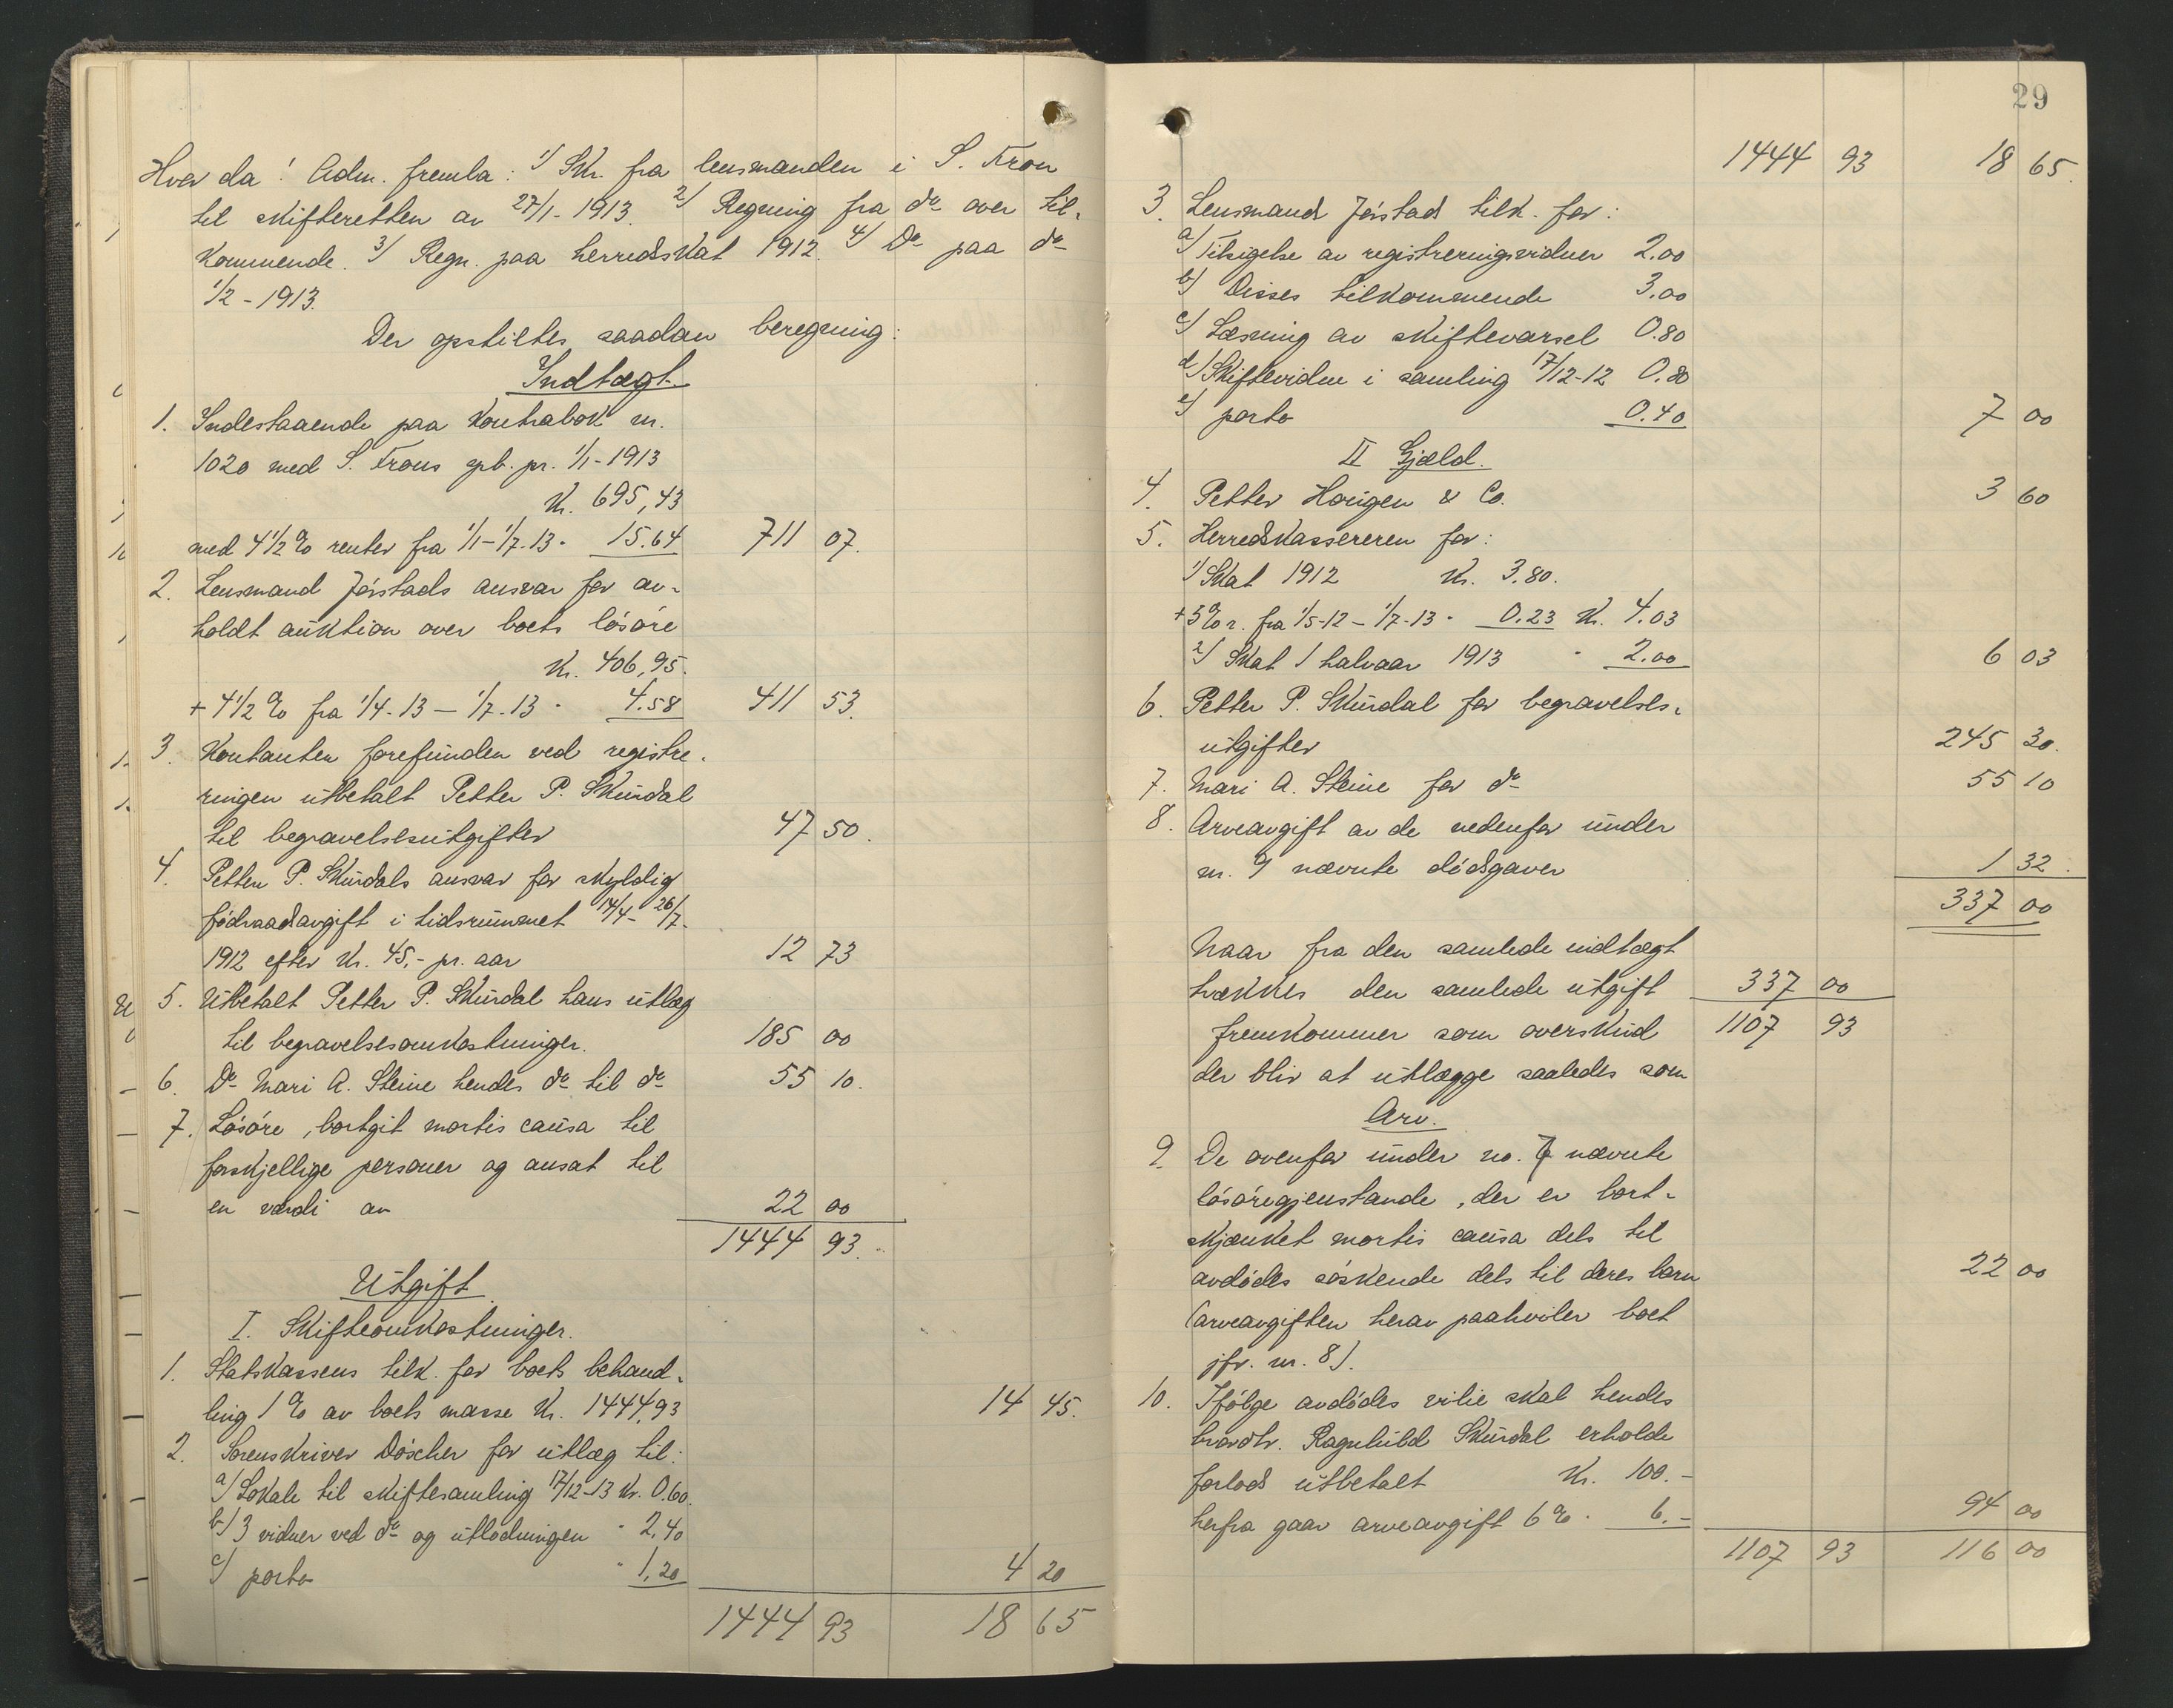 Hvor da! Adm. fremla: 1/ Skr. fra lensmanden i S. Fron
til skifteretten av 27/1-1913. 2/ Regning fra do over til-
kommende. 3/ Regn. paa herredsskat 1912. 4/ Do paa do
1/2-1913.
Der opstiltes saadan beregning:
Indtægt.
1. Indestaaende paa kontrabok nr.
1020 med S. Frons spb. pr. 1/1-1913
Kr. 695,43
med 4 1/2 % renter fra 1/1-1/7-13 " 15.64 711 07.
2. Lensmand Jørstads ansvar for av-
holdt auktion over boets løsøre
Kr. 406,95.
+ 4 1/2 % fra 1/4-13 — 1/7-13 " 4.58 411 53.
3. Kontanten forefunden ved registre-
ringen utbetalt Petter P. Skurdal
til begravelsesutgifter 47 50.
4. Petter P. Skurdals ansvar for skyldig
fødraadsavgift i tidsrummet 14/4-26/7-
1912 efter Kr. 45,- pr. aar 12 73
5. Utbetalt Petter P. Skurdal hans utlæg
til begravelsesomkostninger. 185 00
6. Do Mari A. Steine hendes do til do 55 10.
7. Løsøre, bortgit mortis causa til
forskjellige personer og ansat til
en værdi av 22 00
1444 93.
Utgift
I. Skifteomkostninger.
1. Statskassens tilk. for boets behand-
ling 1 % av boets masse Kr. 1444,93 14 45.
2. Sorenskriver Döscher for utlæg til:
a/ Lokale til skiftesamling 17/12-13 Kr. 0.60.
b/ 3 vidner ved do og utlodningen " 2,40
c/ porto " 1,20 4 20
1444 93 18 65
29
1444 93 18 65.
3. Lensmand Jørstad tilk. for:
a/ Tilsigelse av registreringsvidner 2.00
b/ Disses tilkommende 3.00
c/ Læsning av skiftevarsel 0.80
d/ Skiftevidne i samling 17/12-12 0.80
e/ porto 0.40 7 00
II Gjæld.
4. Petter Horigen & Co. 3 60
5. Herredskassereren for:
1/ Skat 1912 Kr. 3.80.
+ 5 % r. fra 1/5-12 — 1/7-13 " 0.23 Kr. 4.03
2/ Skat 1 halvaar 1913 " 2.00 6 03
6. Petter P. Skurdal for begravelses-
utgifter 245 30.
7. Mari A. Steine for do 55 10
8. Arveavgift av de nedenfor under
nr. 9 nævnte dødsgaver 1 32.
337 00
Naar fra den samlede indtægt
trækkes den samlede utgift 337 00
fremkommer som overskud 1107 93
der blir at utlægge saaledes som
Arv.
9. De ovenfor under no. 7 nævnte
løsøregjenstande, der er bort-
skjænket mortis causa dels til
avdødes søskende dels til deres barn 22 00
(arveavgiften herav paahviler boet
jfr. nr. 8).
10. Ifølge avdødes vilie skal hendes
brordtr. Ragnhild Skurdal erholde
forlods utbetalt Kr. 100.-
herfra gaar arveavgift 6 % " 6.- 94 00
1107 93 116 00